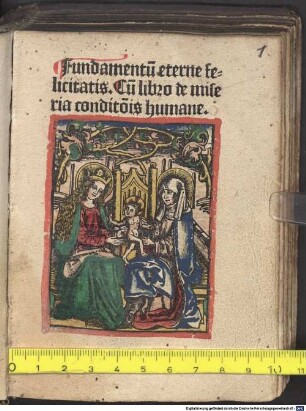 1
Fundamentū eterne fe-
licitatis. Cū libro de mise
ria conditōis humane.
0 1 2 3 4 5 6 7 8 9 10 11
Digitalisierung gefördert durch die Deutsche Forschungsgemeinschaft